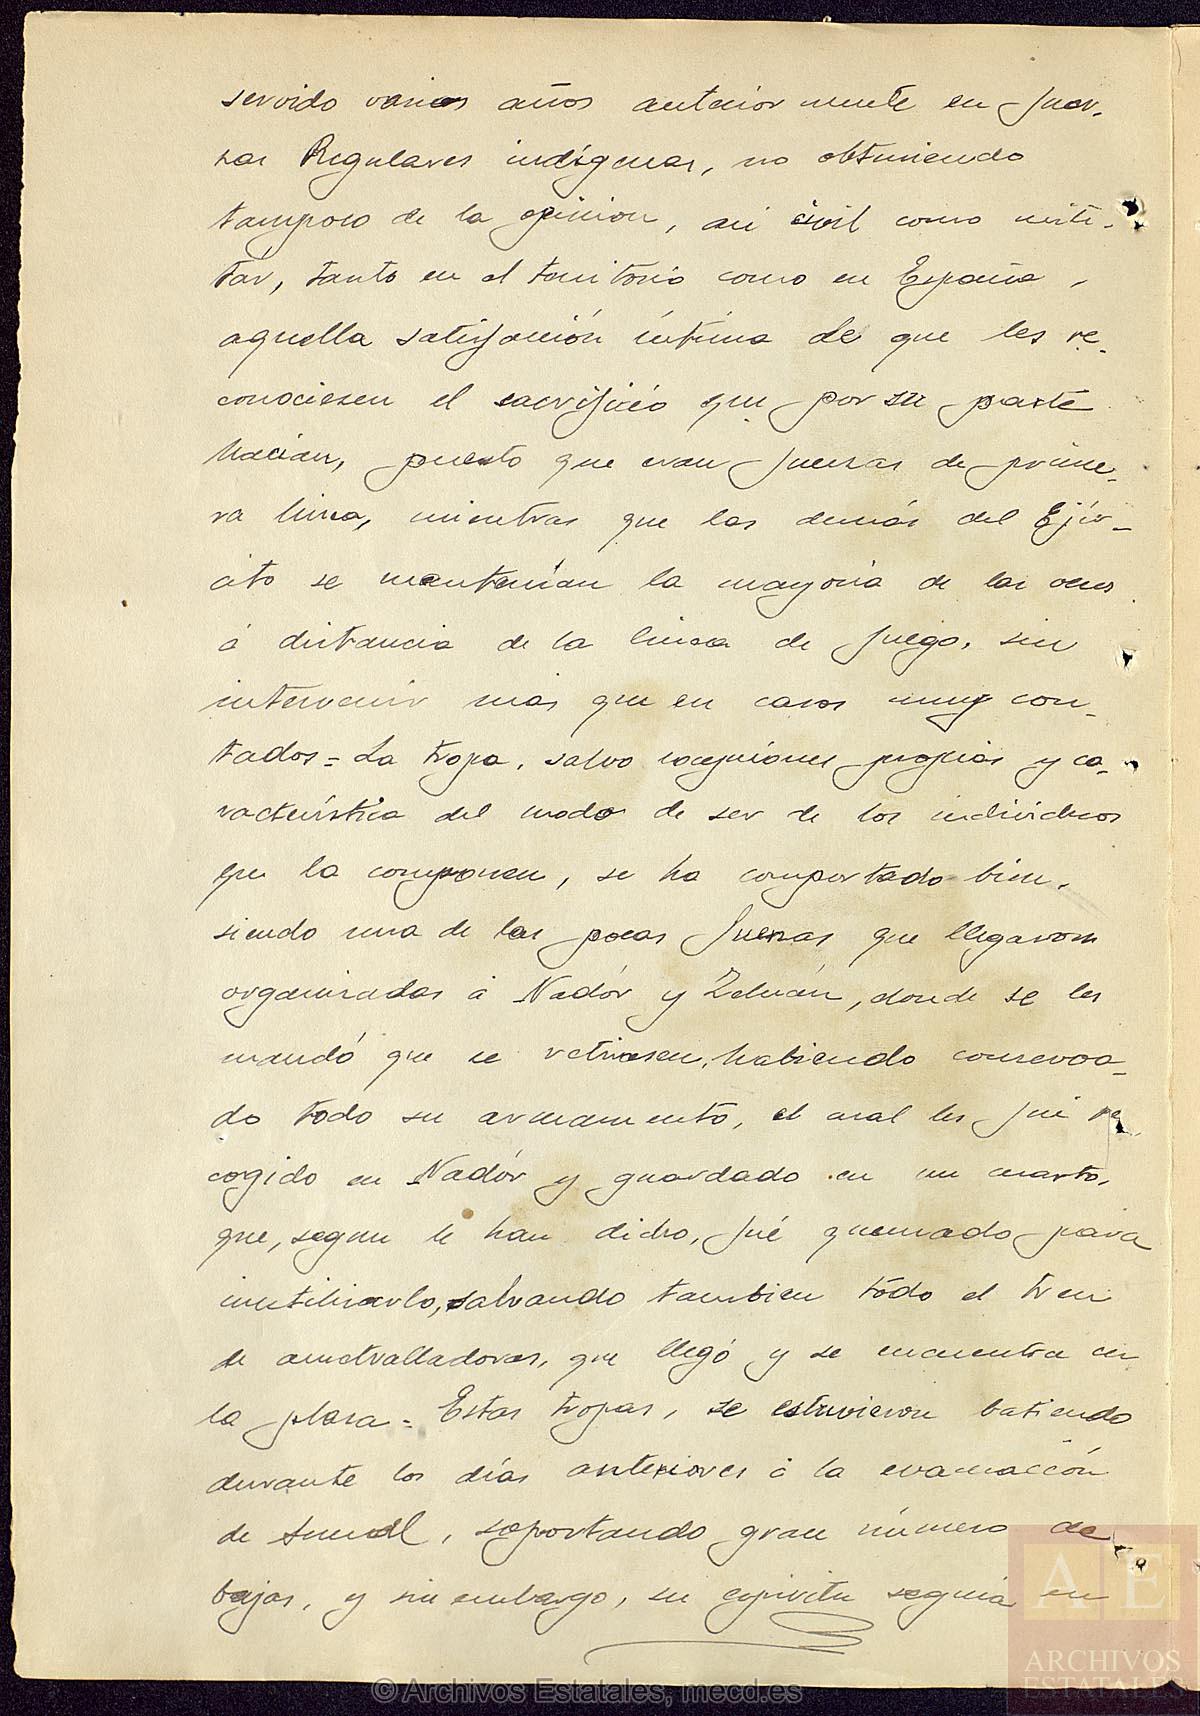 servido varios años anteriormente en fuer-
zas Regulares indígenas, no obteniendo
tampoco de la opinion, asi civil como mili-
tár, tanto en el territorio como en España,
aquella satisfacción íntima de que les re-
conociesen el sacrificio que por su parte
hacian, puesto que eran fuerzas de prime-
ra linea, mientras que las demás del Ejér-
cito se mantenian la mayoria de las veces
á distancia de la linea de fuego, sin
intervenir más que en casos muy con-
tados = La tropa, salvo excepciones propias y ca-
racterística del modo de ser de los individuos
que la componen, se ha comportado bien,
siendo una de las pocas fuerzas que llegaron
organizadas á Nadór y Zeluán, donde se les
mandó que se retirasen, habiendo conserva-
do todo su armamento, el cual les fué re-
cogido en Nadór y guardado en un cuarto,
que, segun le han dicho, fué quemado para
inutilizarlo, salvando tambien todo el tren
de ametralladoras, que llegó y se encuentra en
la plaza = Estas tropas, se estuvieron batiendo
durante los días anteriores á la evacuacción
de Annual, soportando gran número de
bajas, y sin embargo, su espiritu seguia en
AE
ARCHIVOS
ESTATALES
© Archivos Estatales, mecd.es